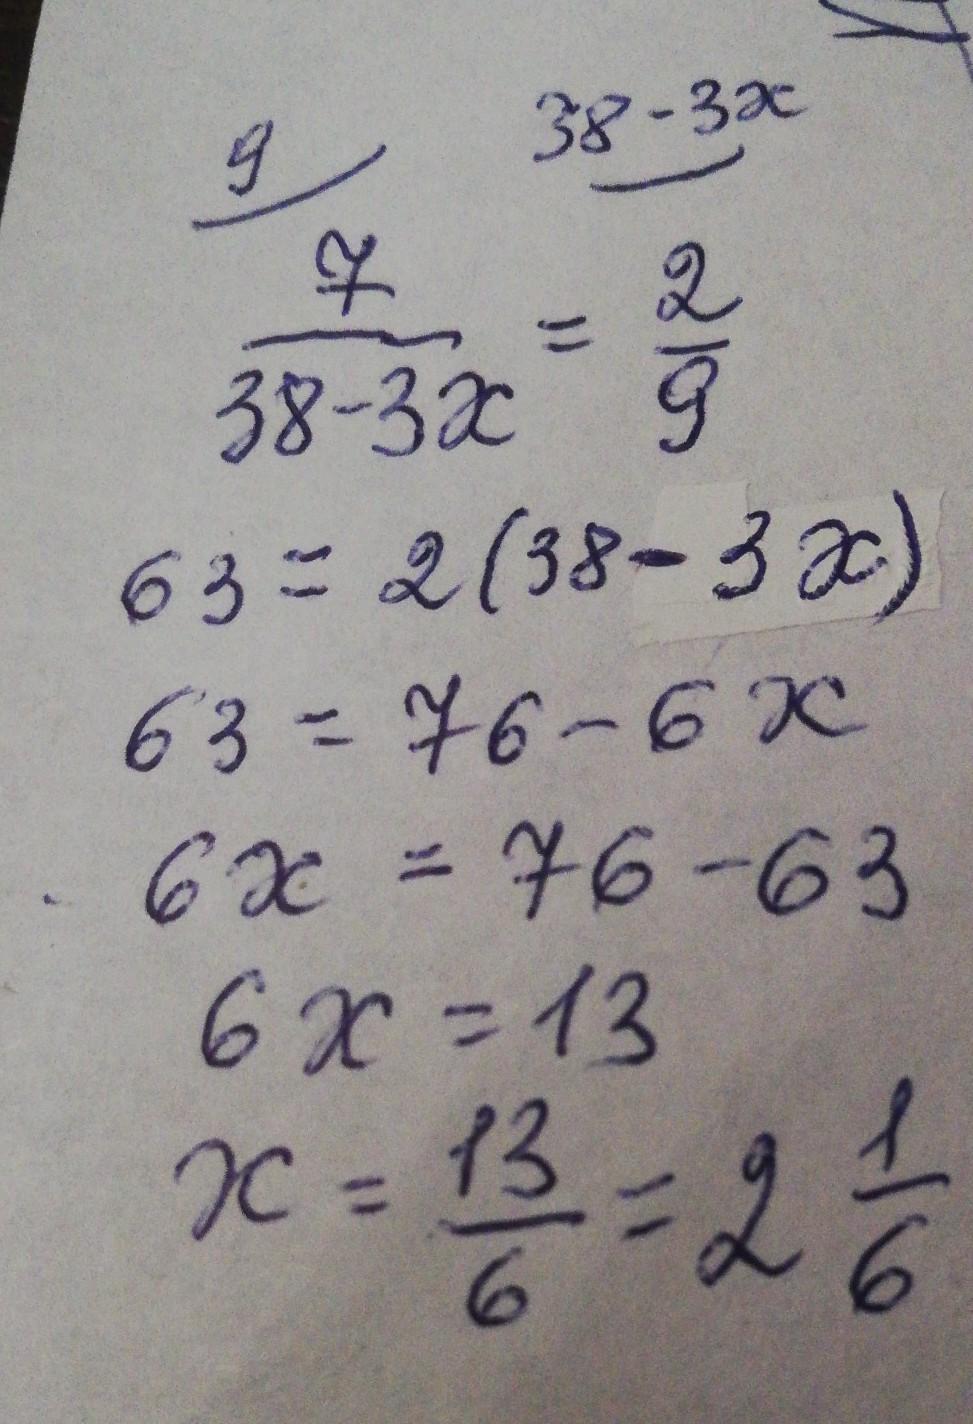 9 38-3x
7/(38-3x) = 2/9
63 = 2(38-3x)
63 = 76-6x
6x = 76-63
6x = 13
x = 13/6 = 2 1/6